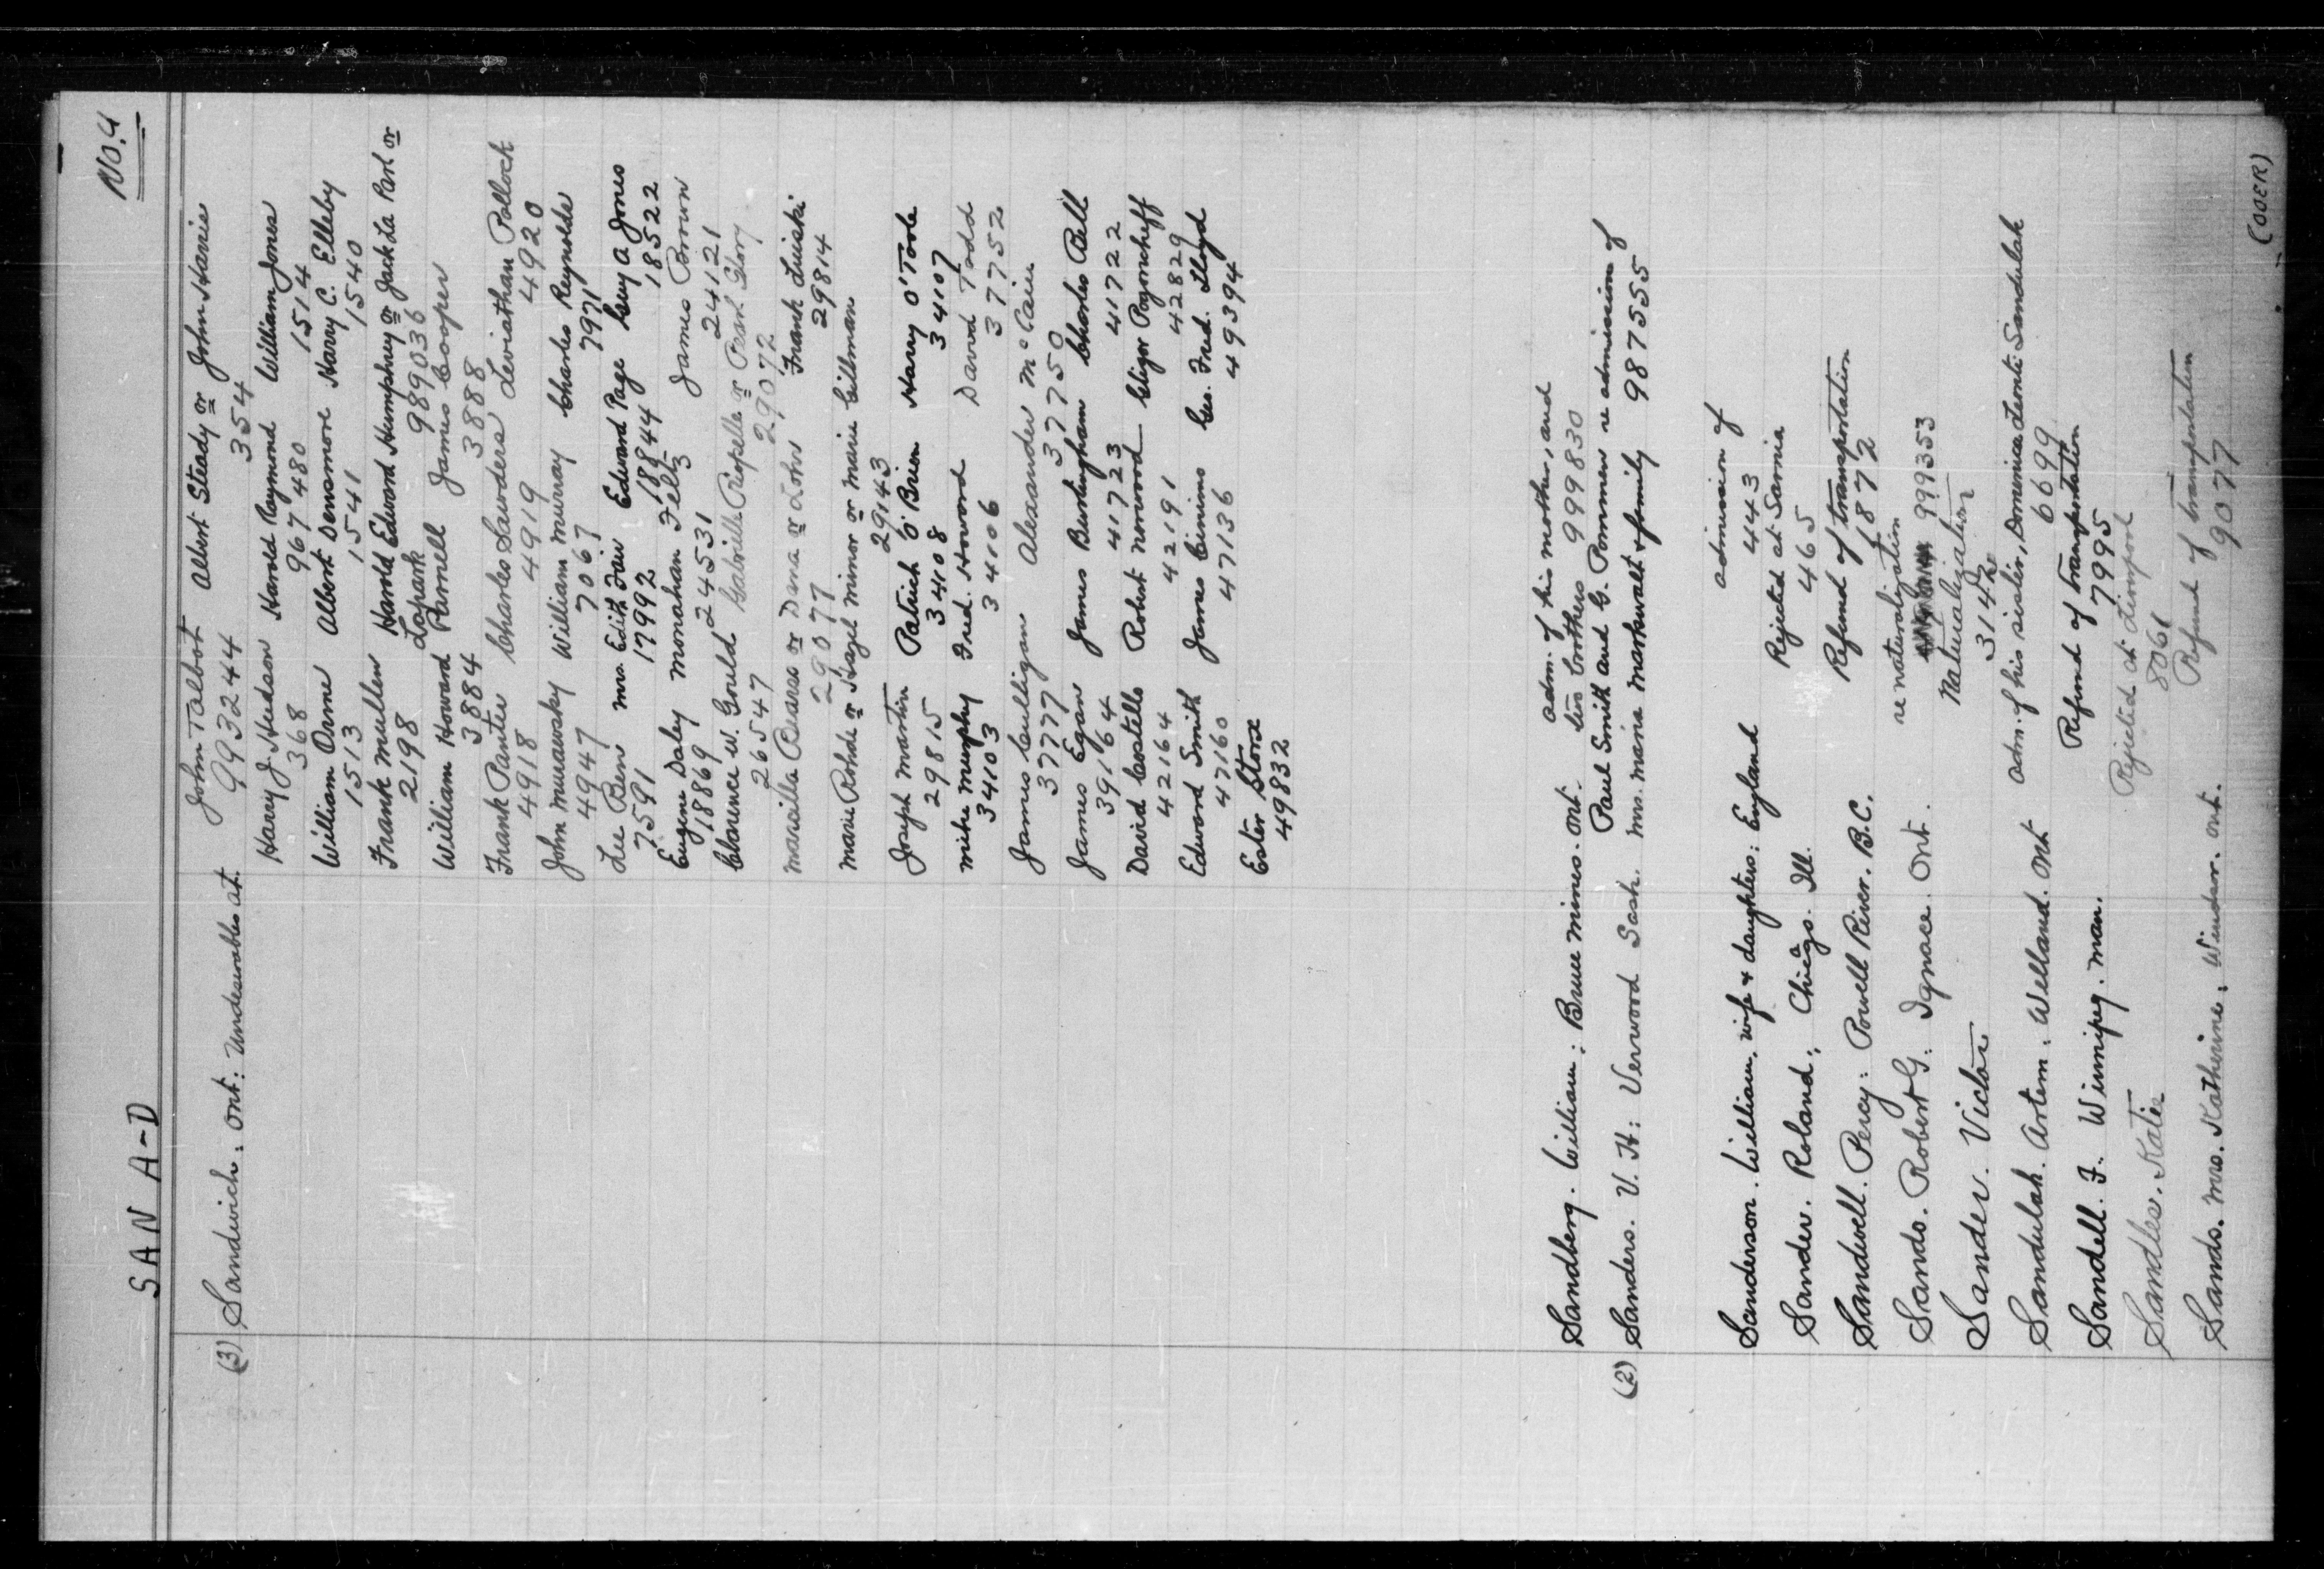 No. 4
SAN A-D
(3) Sandwich: Ont: Undesirables at. John Talbot Albert Steady or John Harris
993244 354
Harry J. Hudson Harold Raymond William Jones
368 967480 1514
William Orme Albert Densmore Harry C. Elleby
1513 1541 1540
Frank Mullen Harold Edward Humphrey or Jack La Park or
2198 Lapark 989036
William Howard Parnell James Cooper
3884 3888
Frank Panter Charles Saunders Leviathan Pollock
4918 4919 4920
John Murawsky William Murray Charles Reynolds
4947 7067 7971
Lee Ben Mrs. Edith Fair Edward Page Guy A Jones
7591 17992 18844 18522
Eugene Daley Monahan Feltz James Brown
18869 24531 24121
Clarence W. Gould Gabrielle Riopelle or Pearl Glory
26547 29072
Marcilla Bearss or Dema or Lohr Frank Luiski
29077 29814
Marie Rohde or Hazel Minor or Marie Cillman
29143
Joseph Martin Patrick O'Brien Harry O'Toole
29815 34108 34107
Mike Murphy Fred. Howard David Todd
34103 34106 37752
James Culligan Alexander McCain
37777 37750
James Egan James Burlingham Charles Bell
39164 41723 41722
David Costello Robert Norwood Gligor Pogoncheff
42164 42191 42829
Edward Smith James Cinimo Geo. Fred. Lloyd
47160 47136 49394
Ester Storx
49832
Sandberg. William: Bruce Mines. Ont. adm. of his mother, and
two brothers 999830
(2) Sanders. V. H: Verwood Sask. Paul Smith and G. Pommen re admission of
Mrs. Maria Markwalt & family 987555
Sanderson. William, wife & daughters: England admission of
443
Sander. Roland; Chicago. Ill. Rejected at Sarnia
465
Sandwell. Percy: Powell River. B.C. Refund of transportation
1872
Sands. Robert G: Ignace. Ont. re naturalization
999353
Sander. Victor Naturalization
3142
Sandulak. Artem. Welland. Ont adm. of his sister, Dominica Leonti Sandulak
6699
Sandell. F. Winnipeg. Man. Refund of transportation
7995
Sandles. Katie Rejected at Liverpool
8061
Sands. Mrs. Katherine, Windsor. Ont. Refund of transportation
9077
(OOER)